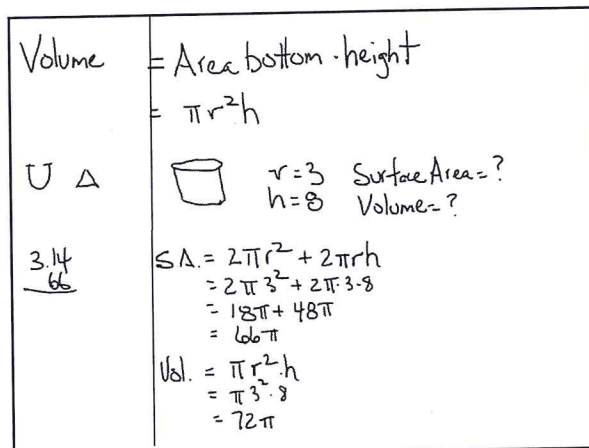 Volume = Area bottom · height
= πr²h
U Δ r=3 Surface Area=?
h=8 Volume=?
3.14 S A. = 2πr² + 2πrh
66 = 2π3² + 2π·3·8
= 18π + 48π
= 66π
Vol. = πr²·h
= π3²·8
= 72π